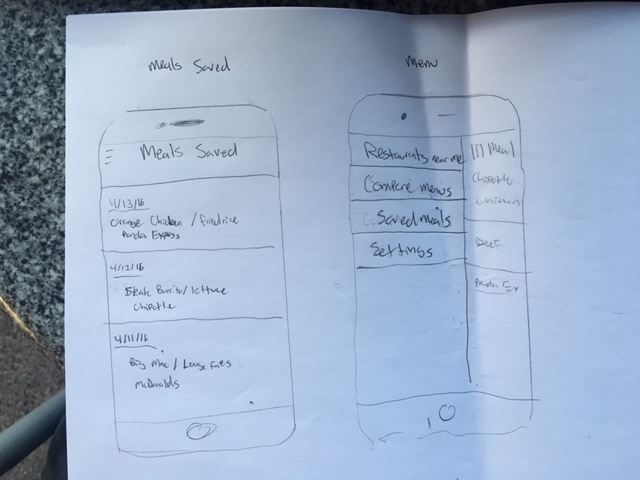 Meals Saved
Meals Saved
4/13/16
Orange Chicken / fried rice
Panda Express
4/12/16
Steak Burrito / lettuce
Chipotle
4/11/16
Big Mac / Large Fries
McDonalds
Menu
Restaurants near me
Compare menus
Saved meals
Settings
Meal
Chipotle
Chicken
Beef
Panda Ex